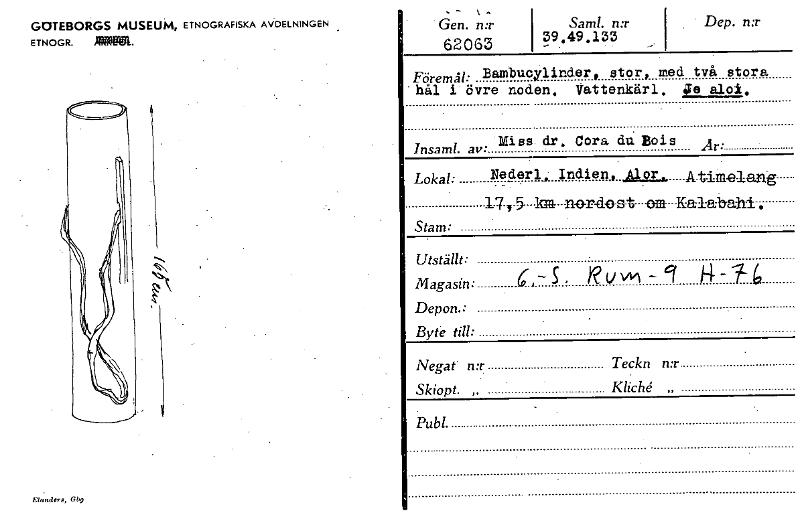 GÖTEBORGS MUSEUM, ETNOGRAFISKA AVDELNINGEN
ETNOGR.
165 cm.
Elanders, Gbg
Gen. n:r
62063
Saml. n:r
39.49.133
Dep. n:r
Föremål: Bambucylinder, stor, med två stora
hål i övre noden. Vattenkärl. Je aloi.
Insaml. av: Miss dr. Cora du Bois År:
Lokal: Nederl. Indien, Alor. Atimelang
17,5 km nordost om Kalabahi.
Stam:
Utställt:
Magasin: 6.-S. RUM-9 H-76
Depon.:
Byte till:
Negat n:r Teckn n:r
Skiopt. „ Kliché „
Publ.